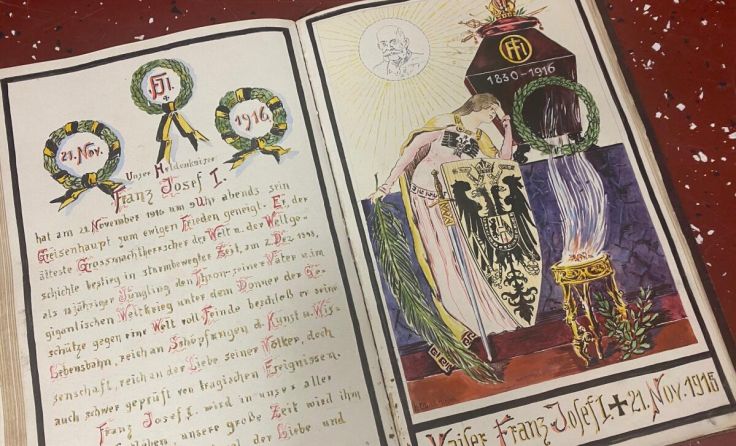 21. Nov.
FJI.
1916.
Unser Heldenkaiser
Franz Josef I.
hat am 21. November 1916 um 9 Uhr abends sein
Greisenhaupt zum ewigen Frieden geneigt. Er, der
älteste Grossmachtherrscher der Welt u. der Weltge-
schichte bestieg in sturmbewegter Zeit, am 2. Dez.
als 18jähriger Jüngling den Thron seiner Väter u. im
gigantischen Weltkrieg unter dem Donner der Ge-
schütze gegen eine Welt voll Feinde beschloß er seine
Lebensbahn, reich an Schöpfungen d. Kunst u. Wis-
senschaft, reich an der Liebe seiner Völker, doch
auch schwer geprüft von tragischen Ereignissen.
Franz Josef I. wird in unser aller
unsere große Zeit wird ihm
der Liebe und
FJI
1830-1916
Kaiser Franz Josef I. + 21. Nov. 1916